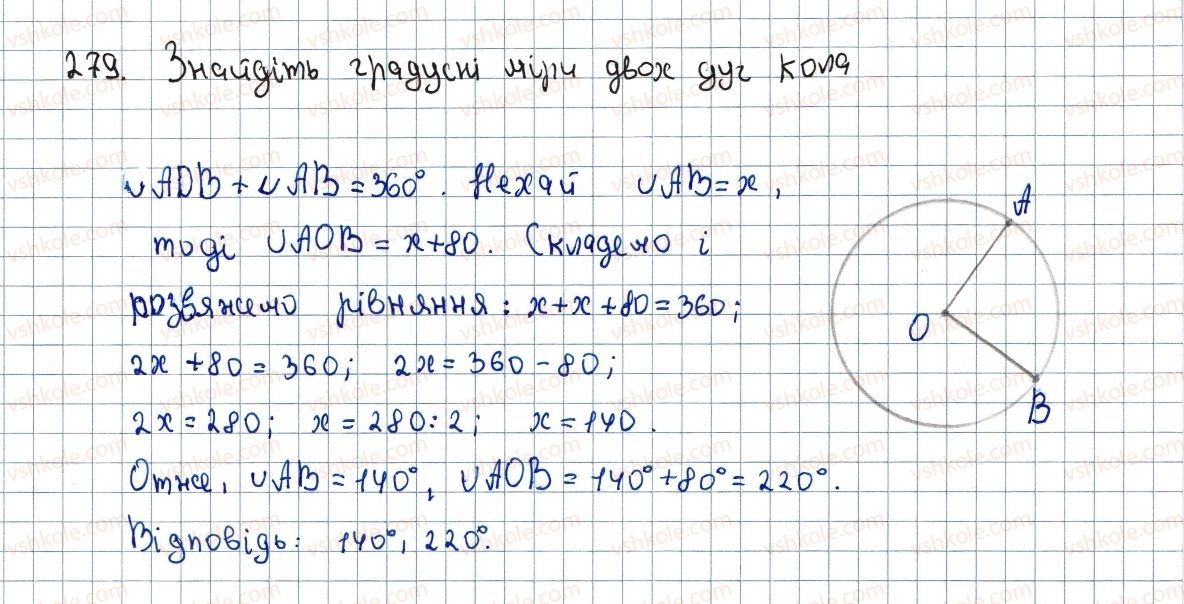 279. Знайдіть градусні міри двох дуг кола
∪ADB + ∪AB = 360°. Нехай ∪AB = x,
тоді ∪AOB = x+80. Складемо і
розвяжемо рівняння: x+x+80=360;
2x+80=360; 2x=360-80;
2x=280; x=280:2; x=140.
Отже, ∪AB=140°, ∪AOB=140°+80°=220°.
Відповідь: 140°, 220°.
A
O
B
vshkole.com